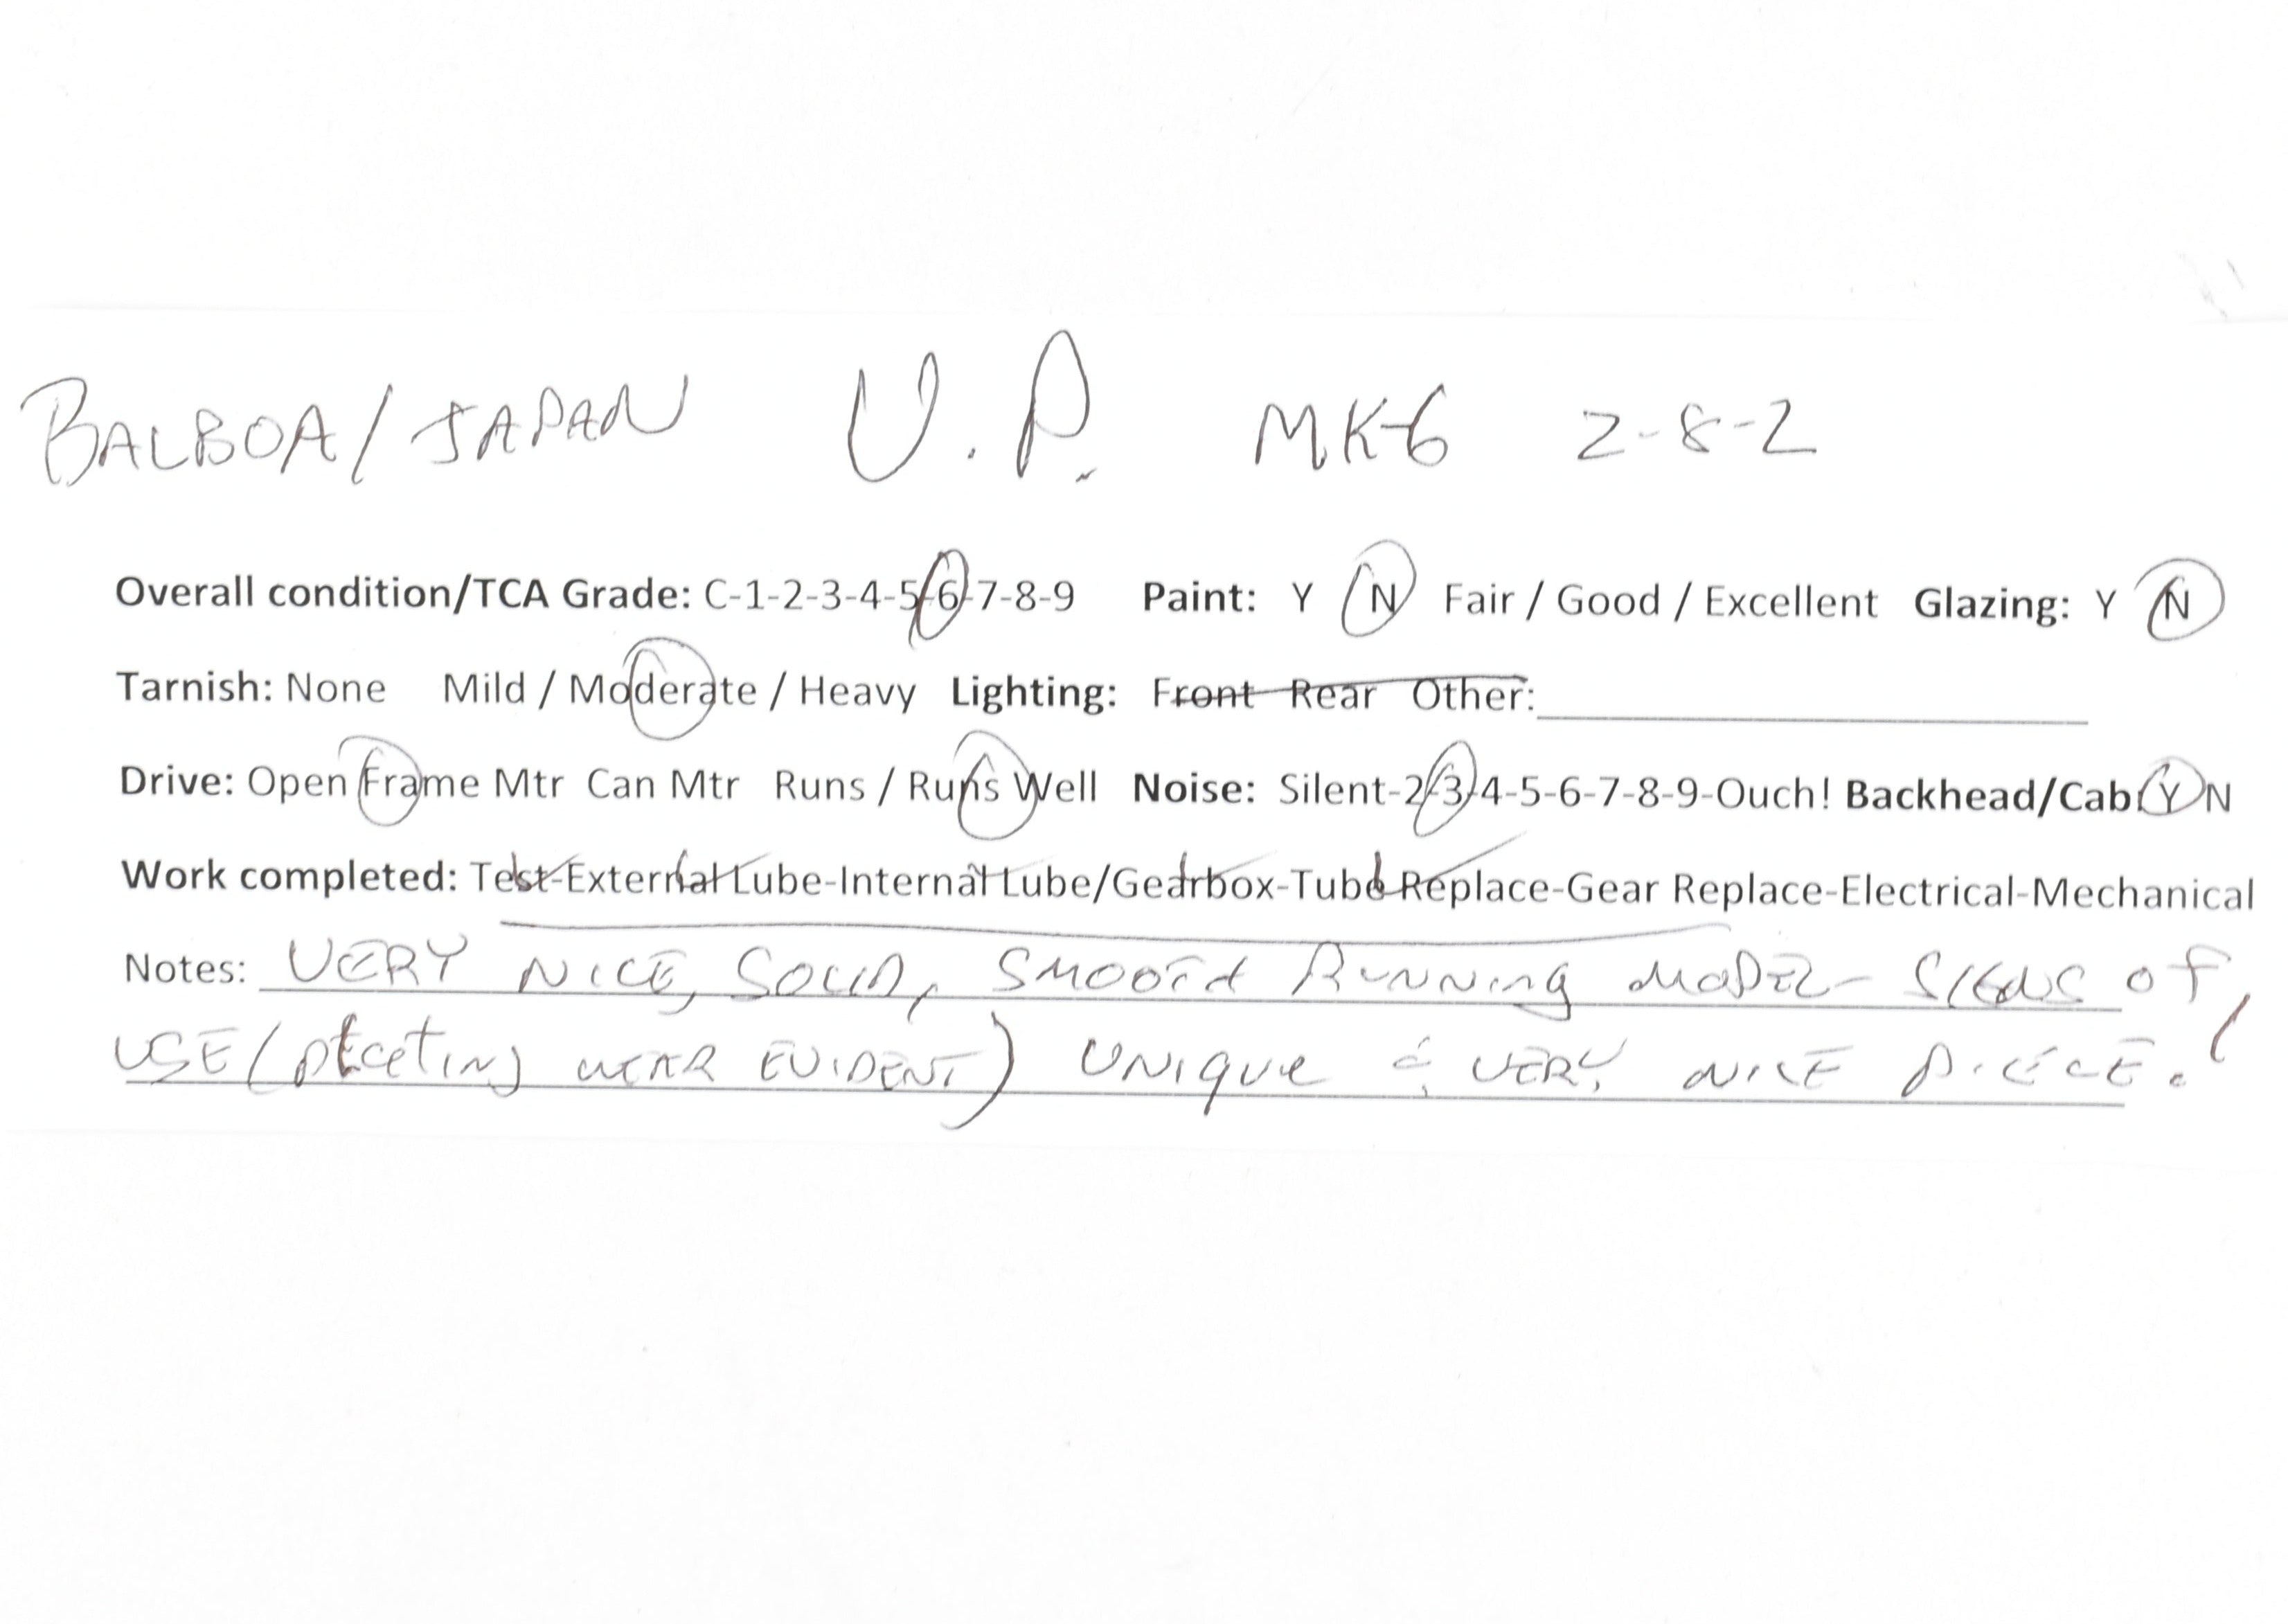 BALBOA/JAPAN U.P. MK-6 2-8-2
Overall condition/TCA Grade: C-1-2-3-4-5-6-7-8-9 Paint: Y N Fair / Good / Excellent Glazing: Y N
Tarnish: None Mild / Moderate / Heavy Lighting: Front Rear Other:
Drive: Open Frame Mtr Can Mtr Runs / Runs Well Noise: Silent-2-3-4-5-6-7-8-9-Ouch! Backhead/Cab: Y N
Work completed: Test-External Lube-Internal Lube/Gearbox-Tube Replace-Gear Replace-Electrical-Mechanical
Notes: VERY NICE, SOLID, SMOOTH RUNNING MODEL- SIGNS OF
USE (PLATING WEAR EVIDENT) UNIQUE & VERY NICE PIECE!